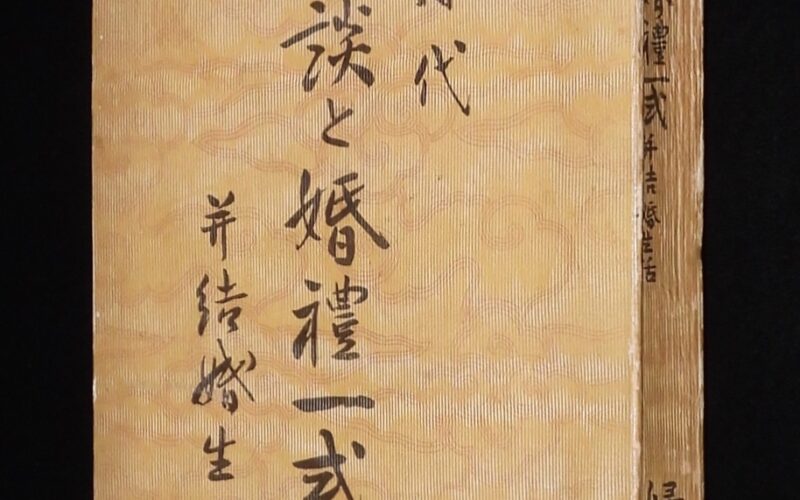 代
談と婚禮一式
并結婚生
婚禮一式并結婚生活